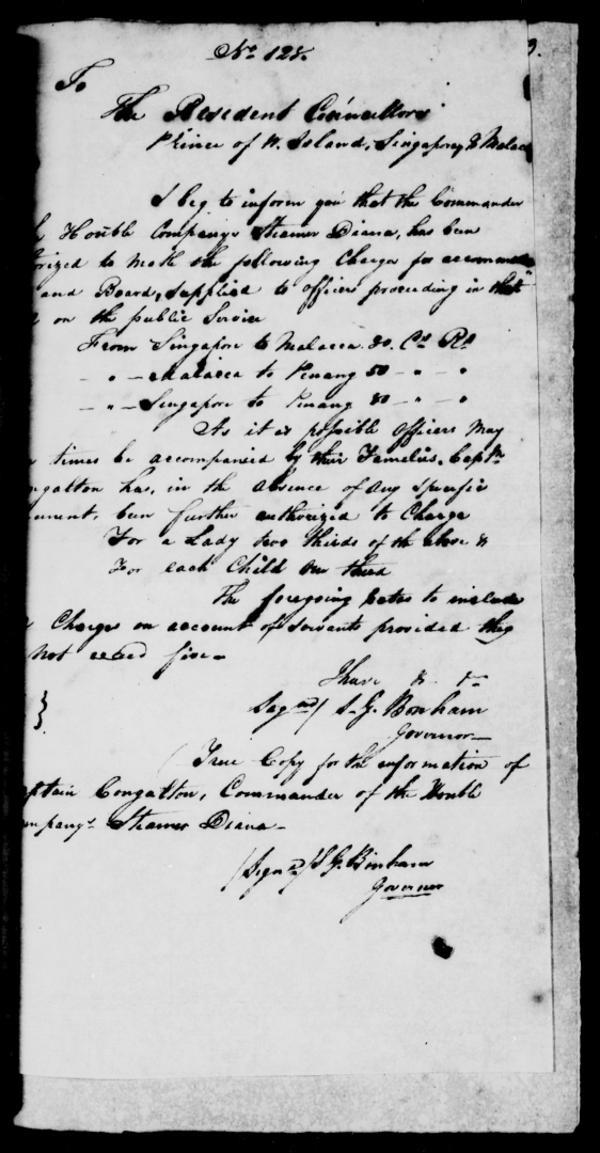 No. 128.
To
The Resident Councillors
Prince of W. Island, Singapore, & Malac
I beg to inform you that the Commander
Honble Companys Steamer Diana, has been
orized to make the following Charges for accommoda
and Board, supplied to Officers proceeding in that
on the public Service
From Singapore to Malacca 30. Cos Rs
- " - Malacca to Penang 50 - " - "
- " - Singapore to Penang 80 - " - "
As it is possible Officers may
times be accompanied by their Families, Captn
ngalton has, in the absence of any specific
ument, been further authorized to Charge
For a Lady two thirds of the above &
For each Child one third
The foregoing rates to include
Charges on account of servants provided they
not exceed five -
I have & &ca
Signed/ S. G. Bonham
Governor
True Copy for the information of
ptain Congalton, Commander of the Honble
mpanys Steamer Diana -
/Signed/ S G. Bonham
Governor